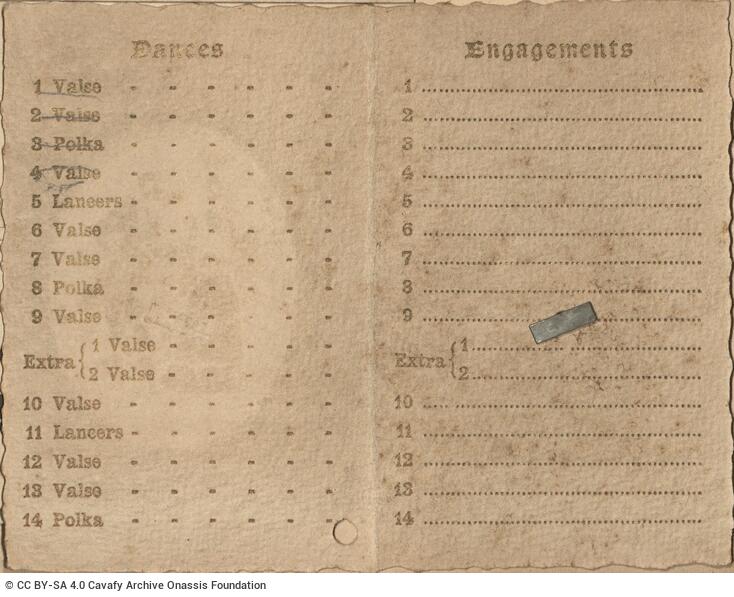 Dances
1 Valse
2 Valse
3 Polka
4 Valse
5 Lancers
6 Valse
7 Valse
8 Polka
9 Valse
Extra { 1 Valse
2 Valse
10 Valse
11 Lancers
12 Valse
13 Valse
14 Polka
Engagements
1
2
3
4
5
6
7
8
9
Extra { 1
2
10
11
12
13
14
© CC BY-SA 4.0 Cavafy Archive Onassis Foundation